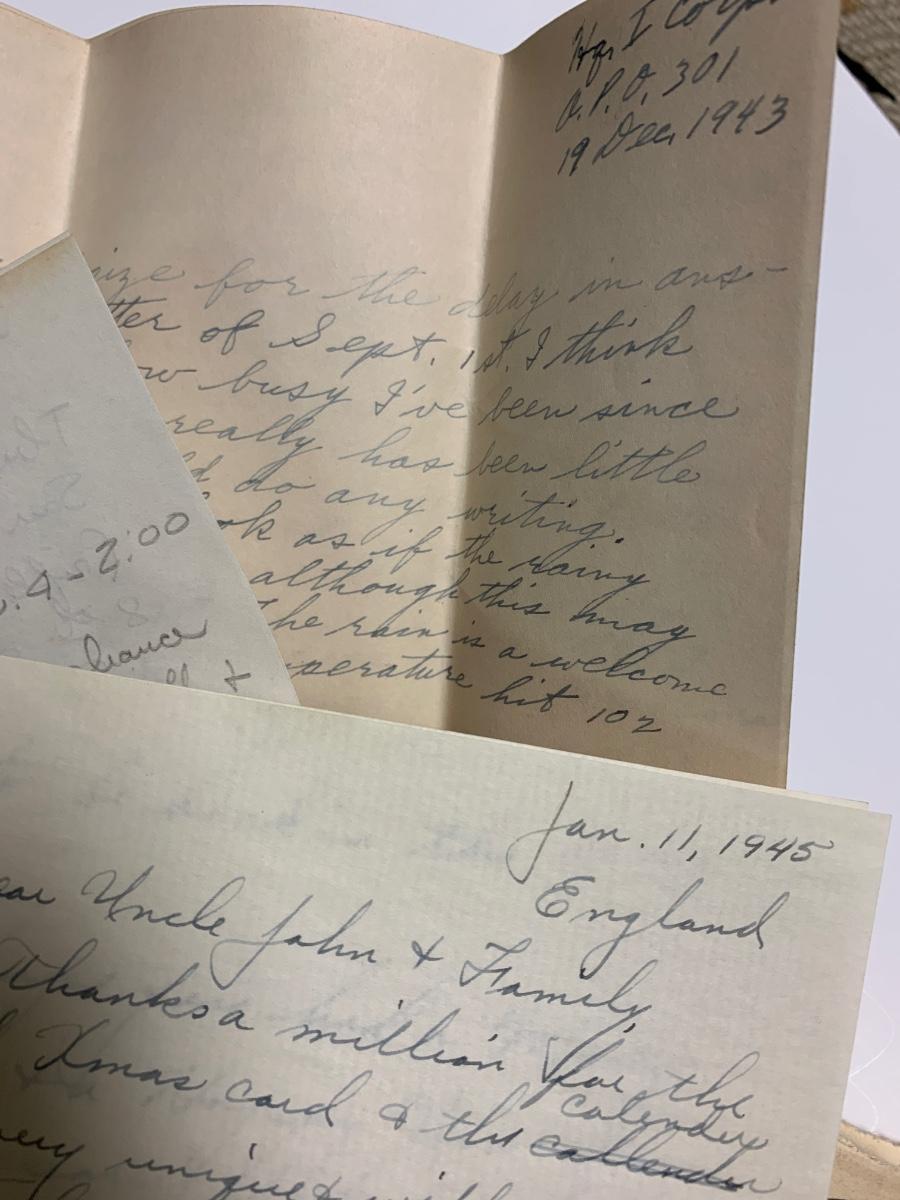 Hq. I Corps
A.P.O. 301
19 Dec. 1943
ize for the delay in ans-
tter of Sept. 1st. I think
ow busy I've been since
really has been little
d do any writing.
ok as if the rainy
although this may
he rain is a welcome
perature hit 102
- 2:00
hance
ll +
Jan. 11, 1945
England
ear Uncle John & Family,
Thanks a million for the
Xmas card & the callender calender
very unique &